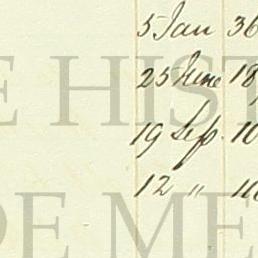 5 Jan 36
25 June 18
E HIST
19 Sep. 10
12 "
DE ME